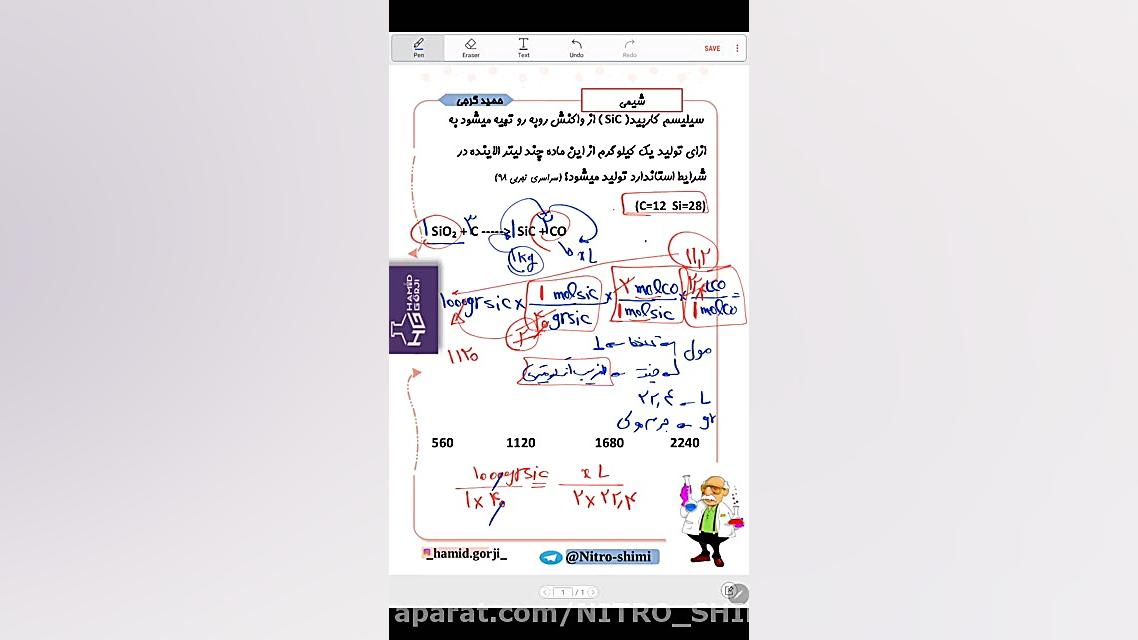 Pen Eraser Text Undo Redo SAVE
شیمی
حمید گرجی
سیلیسم کاربید( SiC) از واکنش روبه رو تهیه میشود به
ازای تولید یک کیلوگرم از این ماده چند لیتر الاینده در
شرایط استاندارد تولید میشود؟ (سراسری تجربی ۹۸)
(C=12 Si=28)
1 SiO2 + ۳ C -----> 1 SiC + ۲ CO
1kg x L
۱۱,۲
1000gr sic × 1 mol sic / ۴۰ gr sic × ۲ mol co / 1 mol sic × LCO / 1 molco =
۱۱۲۰
HAMID GORJI
مول
ضریب استوکیومتری
۲۲,۴ ـ L
gr جرم مولی
560 1120 1680 2240
1000gr sic / 1 × ۴۰ = x L / ۲ × ۲۲,۴
_hamid.gorji_
@Nitro-shimi
1 / 1
aparat.com/NITRO_SHI